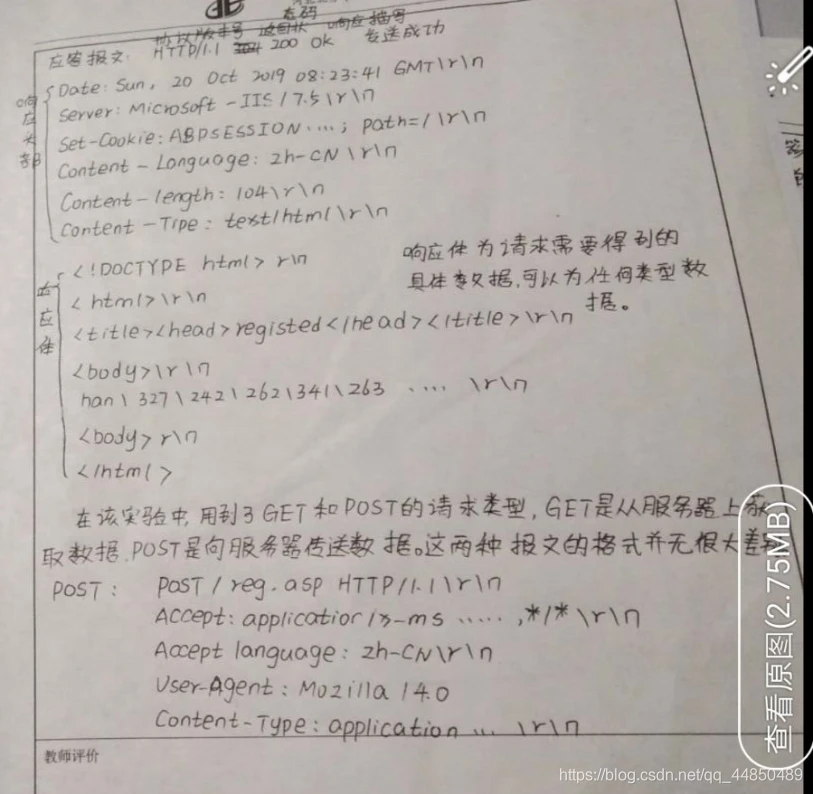 状态码
协议版本号 返回状 响应描写
应答报文: HTTP/1.1 200 OK 发送成功
响应头部
Date: Sun, 20 Oct 2019 08:23:41 GMT\r\n
Server: Microsoft-IIS/7.5\r\n
Set-Cookie: ABPSESSION....; path=/\r\n
Content-Language: zh-CN\r\n
Content-length: 104\r\n
Content-Tipe: text/html\r\n
响应体
<!DOCTYPE html> r\n
<html>\r\n
<title><head>registed</head></title>\r\n
<body>\r\n
han\327\242\262\341\263 .... \r\n
<body> r\n
</html>
响应体为请求需要得到的
具体数据,可以为任何类型数
据。
在该实验中,用到了GET和POST的请求类型,GET是从服务器上获
取数据,POST是向服务器传送数据。这两种报文的格式并无很大差
POST: POST / reg.asp HTTP/1.1\r\n
Accept: application/x-ms ..... ,*/*\r\n
Accept language: zh-CN\r\n
User-Agent: Mozilla/4.0
Content-Type: application ... \r\n
教师评价
查看原图(2.75MB)
https://blog.csdn.net/qq_44850489